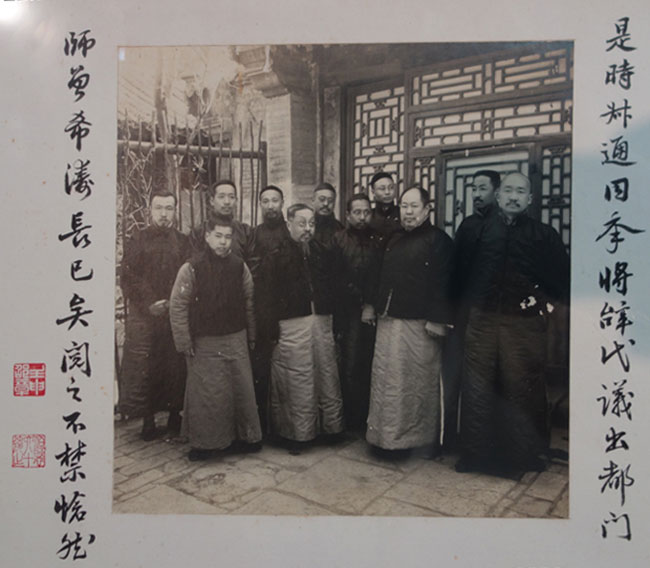 是時尗通將辭代議出都門
師曾希濤長已矣閱之不禁愴然